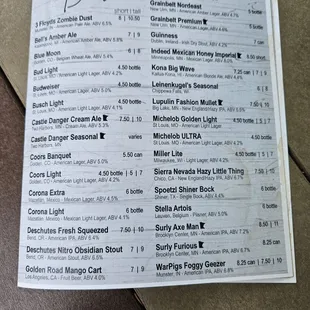 short | tall
3 Floyds Zombie Dust 8 | 10.50
Munster, IN - American Pale Ale, ABV 6.5%
Bell's Amber Ale 7 | 9
Kalamazoo, MI - American Amber Ale, ABV 5.8%
Blue Moon 6 | 8
Golden, CO - Belgian Wheat Ale, ABV 5.4%
Bud Light 4.50 tall
St Louis, MO - American Light Lager, ABV 4.2%
Budweiser 4.50 bottle
St Louis, MO - American Lager, ABV 5.0%
Busch Light 4.50 tall
St Louis, MO - American Light Lager, ABV
Castle Danger Cream Ale 7.50 | 10
Two Harbors, MN - Cream Ale, ABV 5.3%
Castle Danger Seasonal varies
Two Harbors, MN
Coors Banquet 5.50 can
Golden, CO - American Lager, ABV 5.0%
Coors Light 4.50 bottle | 5 | 7
Golden, CO - American Light Lager, ABV 4.2%
Corona Extra 6 bottle
Mazatlan, Mexico - Mexican Lager, ABV 4.5%
Corona Light 6 bottle
Mazatlan, Mexico - Mexican Light Lager, ABV
Deschutes Fresh Squeezed 7.50 | 10
Bend, OR - American IPA, ABV 6.4%
Deschutes Nitro Obsidian Stout 7 | 9
Bend, OR - American Stout, ABV 6.5%
Golden Road Mango Cart 7 | 9
Los Angeles, CA - Fruit Beer, ABV 4.0%
Grainbelt Nordeast
New Ulm, MN - American Amber Lager, ABV 4.7%
Grainbelt Premium
New Ulm, MN
Guinness
Dublin, Ireland - Irish Dry Stout, ABV 4.2%
Indeed Mexican Honey Imperial
Minneapolis, MN
Kona Big Wave 7.25
Kailua Kona, HI - American Blonde Ale, ABV 4.4%
Leinenkugel's Seasonal
Chippewa Falls, WI
Lupulin Fashion Mullet 7.50 | 10
Big Lake, MN
Michelob Golden Light 4.50 bottle
St Louis, MO - American Light Lager
Michelob ULTRA 4.50 bottle
St Louis, MO - American Light Lager, ABV 4.2%
Miller Lite 4.50 bottle | 5 | 7
Milwaukee, WI - American Light Lager, ABV 4.2%
Sierra Nevada Hazy Little Thing 7.50 | 10
Chico, CA - New England/Hazy IPA, ABV 6.7%
Spoetzl Shiner Bock 6 bottle
Shiner, TX - Single Bock, ABV 4.4%
Stella Artois 6 bottle
Leuven, Belgium - Pilsner, ABV 5.0%
Surly Axe Man
Brooklyn Center, MN - American IPA, ABV 7.2%
Surly Furious 8.25 can
Brooklyn Center, MN - American IPA, ABV
WarPigs Foggy Geezer 8.25 can | 7.50 | 10
Munster, IN - American IPA, ABV 6.8%